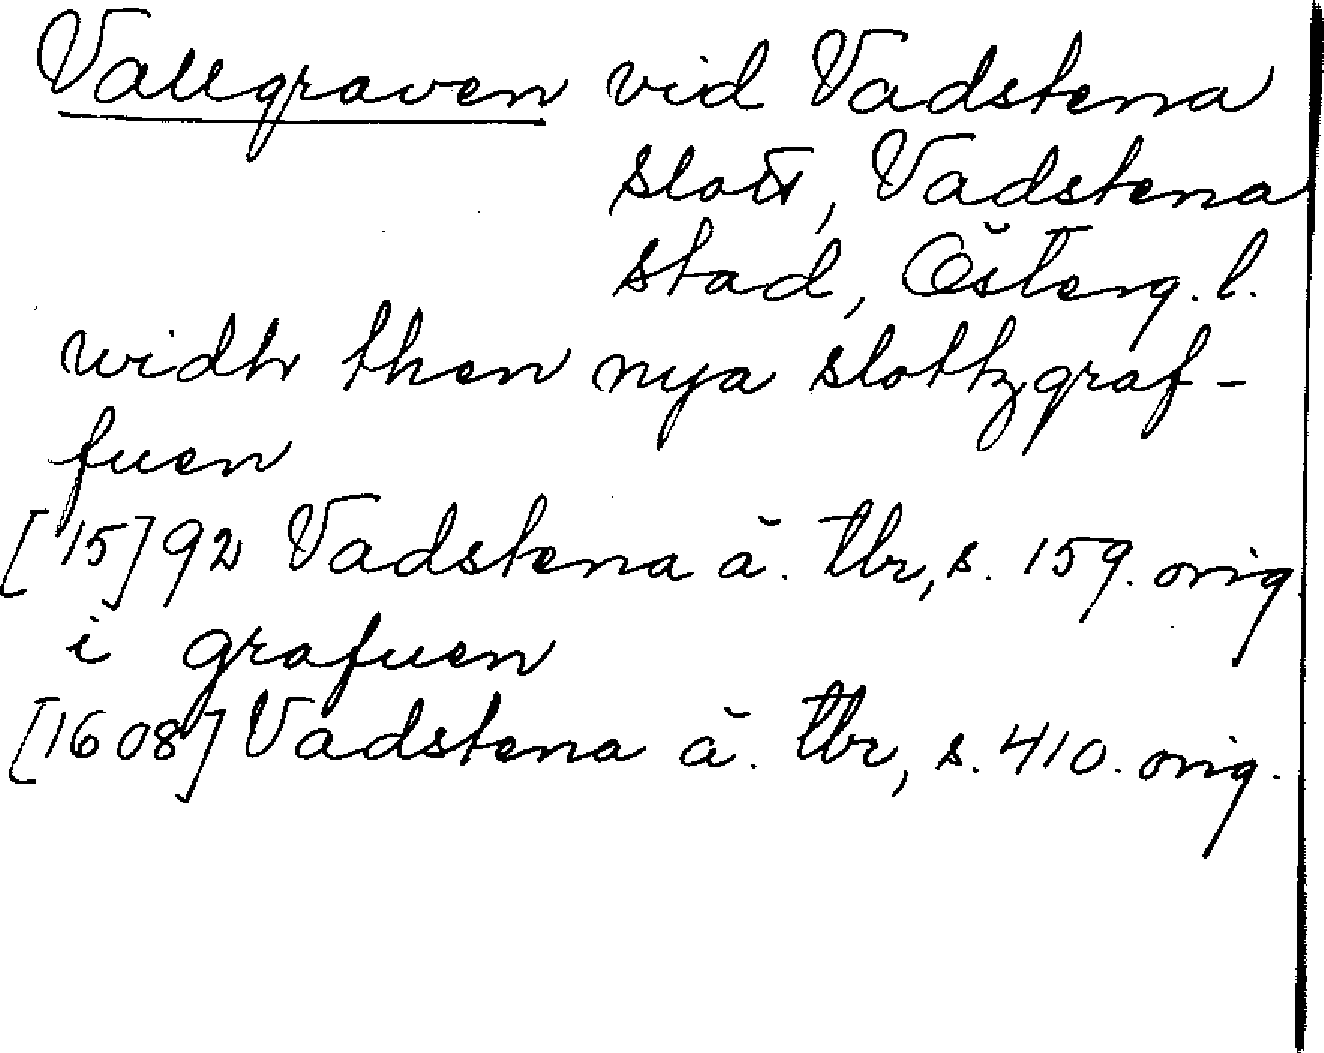 Vallgraven vid Vadstena
slott, Vadstena
stad, Österg. l.
widh then nya slottzgraf-
fuen
[15]92 Vadstena ä. tbr, s. 159. orig
i grafuen
[1608] Vadstena ä. tbr, s. 410. orig.